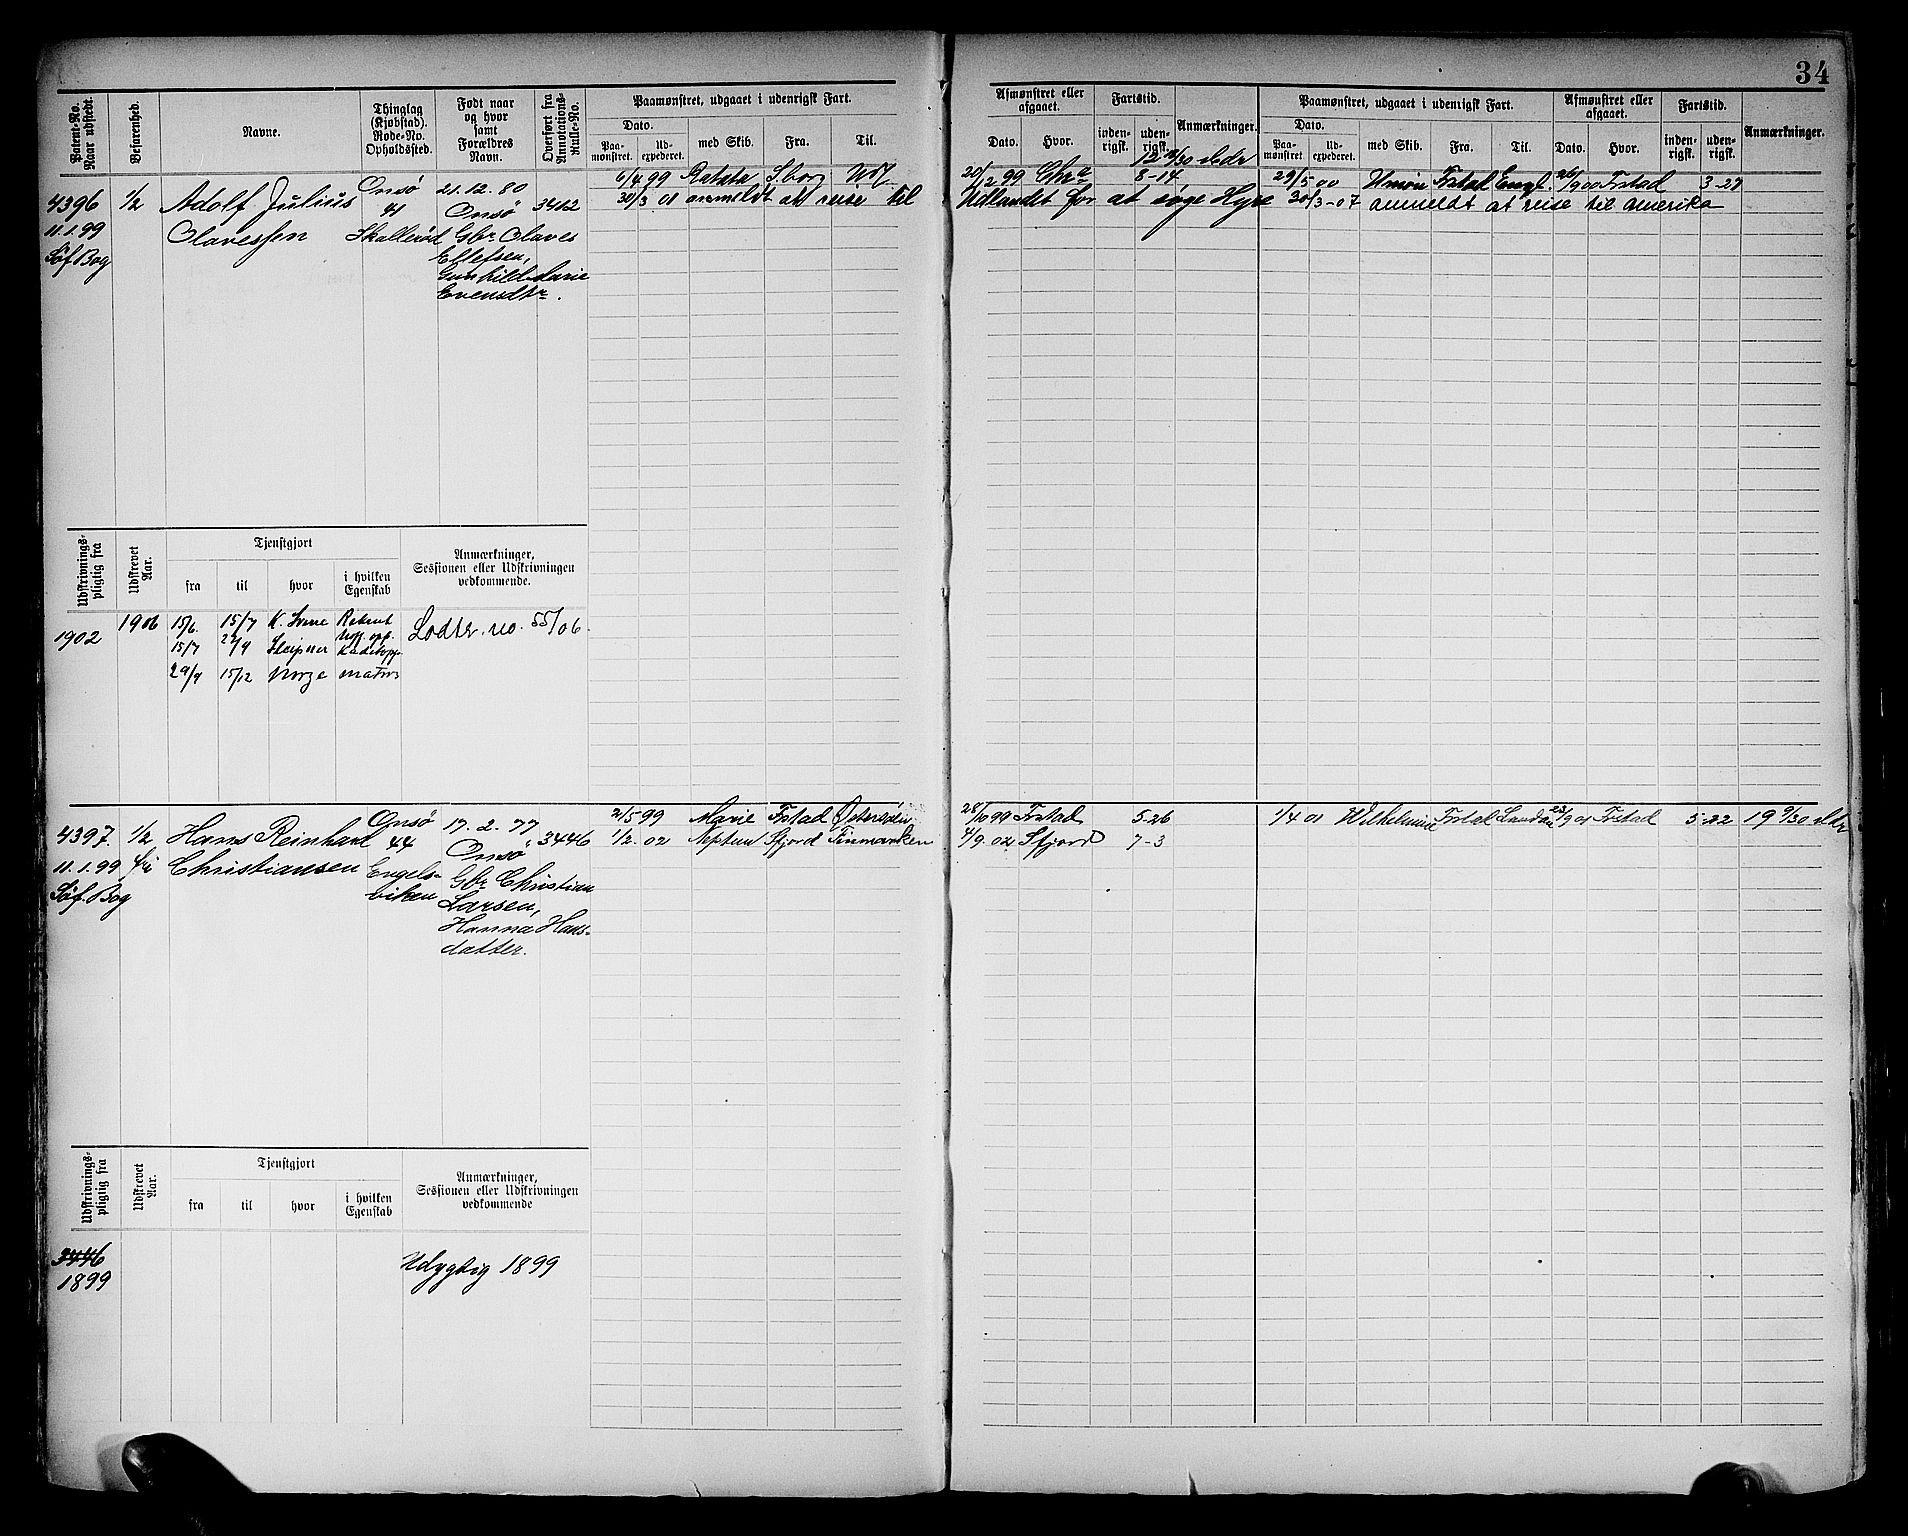 34
Patent-No. Naar udstedt.
Befarenhed.
Navne.
Thinglag (Kjøbstad). Rode-No. Opholdssted.
Født naar og hvor samt Forældres Navn.
Overført fra Annotations-Rulle-No.
Paamønstret, udgaaet i udenrigsk Fart.
Dato.
Paamønstret.
Udexpederet.
med Skib.
Fra.
Til.
Afmønstret eller afgaaet.
Dato.
Hvor.
Fartstid.
indenrigsk.
udenrigsk.
Anmærkninger.
Paamønstret, udgaaet i udenrigsk Fart.
Dato.
Paamønstret.
Udexpederet.
med Skib.
Fra.
Til.
Afmønstret eller afgaaet.
Dato.
Hvor.
Fartstid.
indenrigsk.
udenrigsk.
Anmærkninger.
4396
11.1.99
Søf. Bog
1/2
Adolf Julius
Olavessen
Onsø
41
Skallerød
21.12.80
Onsø
Gbr Olaves
Ellefsen,
Gunhild Marie
Evensdtr.
3412
6/4 99 Ratata S.borg
20/2 99 Chra 8-14
29/5 00 Union Frstad Engl. 26/9 00 Frstad 3-27
30/3 01 anmeldt at reise til Udlandet for at søge Hyre
30/3-07 anmeldt at reise til Amerika
Udskrivningspligtig fra
Udskrevet Aar.
Tjenstgjort
fra
til
hvor
i hvilken Egenskab
Anmærkninger, Sessionen eller Udskrivningen vedkommende.
1902
1906
15/6. 15/7 K. Sverre Rekrut
15/7 Sleipner
29/9 15/12 Norge matros
Lodtr. no. 55/06.
4397.
11.1.99
Søf. Bog
1/2
fri
Hans Reinhard
Christiansen
Onsø
44
Engels-
viken
17.2.77
Onsø
Gbr Christian
Larsen,
Hanna Hans-
datter.
3446
21/5 99 Marie Frstad Østersøen
28/10 99 Frstad 5-26
1/4 01 Wilhelmine Frstad London 23/9 01 Frstad 5-22 19 9/30 Mdr
1/2. 02 Neptun Sfjord Finmarken
4/9. 02 Sfjord 7-3
Udskrivningspligtig fra
Udskrevet Aar.
Tjenstgjort
fra
til
hvor
i hvilken Egenskab
Anmærkninger, Sessionen eller Udskrivningen vedkommende
3446
1899
Udygtig 1899